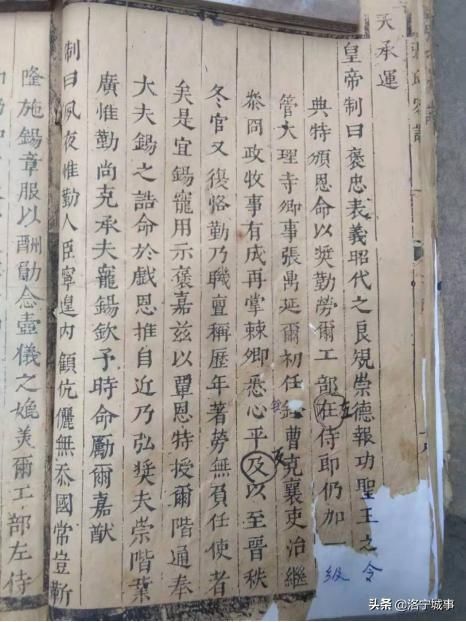 天承運
皇帝制曰褒忠表義昭代之良規崇德報功聖王之令
典特頒恩命以奬勤勞爾工部在左侍郎仍加一級
管大理寺卿事張鼎延爾初任曹克襄吏治繼
叅冏政牧事有成再掌棘卿悉心平及反以至晉秩
冬官又復恪勤乃職亶稱歷年著勞無負任使者
矣是宜錫寵用示褒嘉兹以覃恩特授爾階通奉
大夫錫之誥命於戲恩推自近乃弘奬夫崇階業
廣惟勤尚克承夫寵錫欽予時命勵爾嘉猷
制曰夙夜惟勤人臣寧皇内顧伉儷無忝國常豈靳
隆施錫章服以酬勩念壼儀之媲美爾工部左侍
头条 @洛宁城事